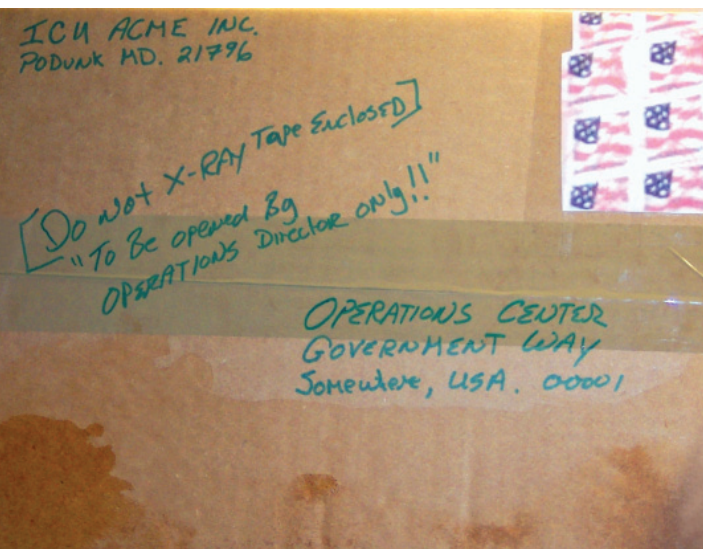 ICU ACME INC.
PODUNK MD. 21796
[DO NOT X-RAY Tape EnclosED]
"To Be opened By
OPERATIONS Director only!!"
OPERATIONS CENTER
GOVERNMENT WAY
Somewhere, USA. 00001